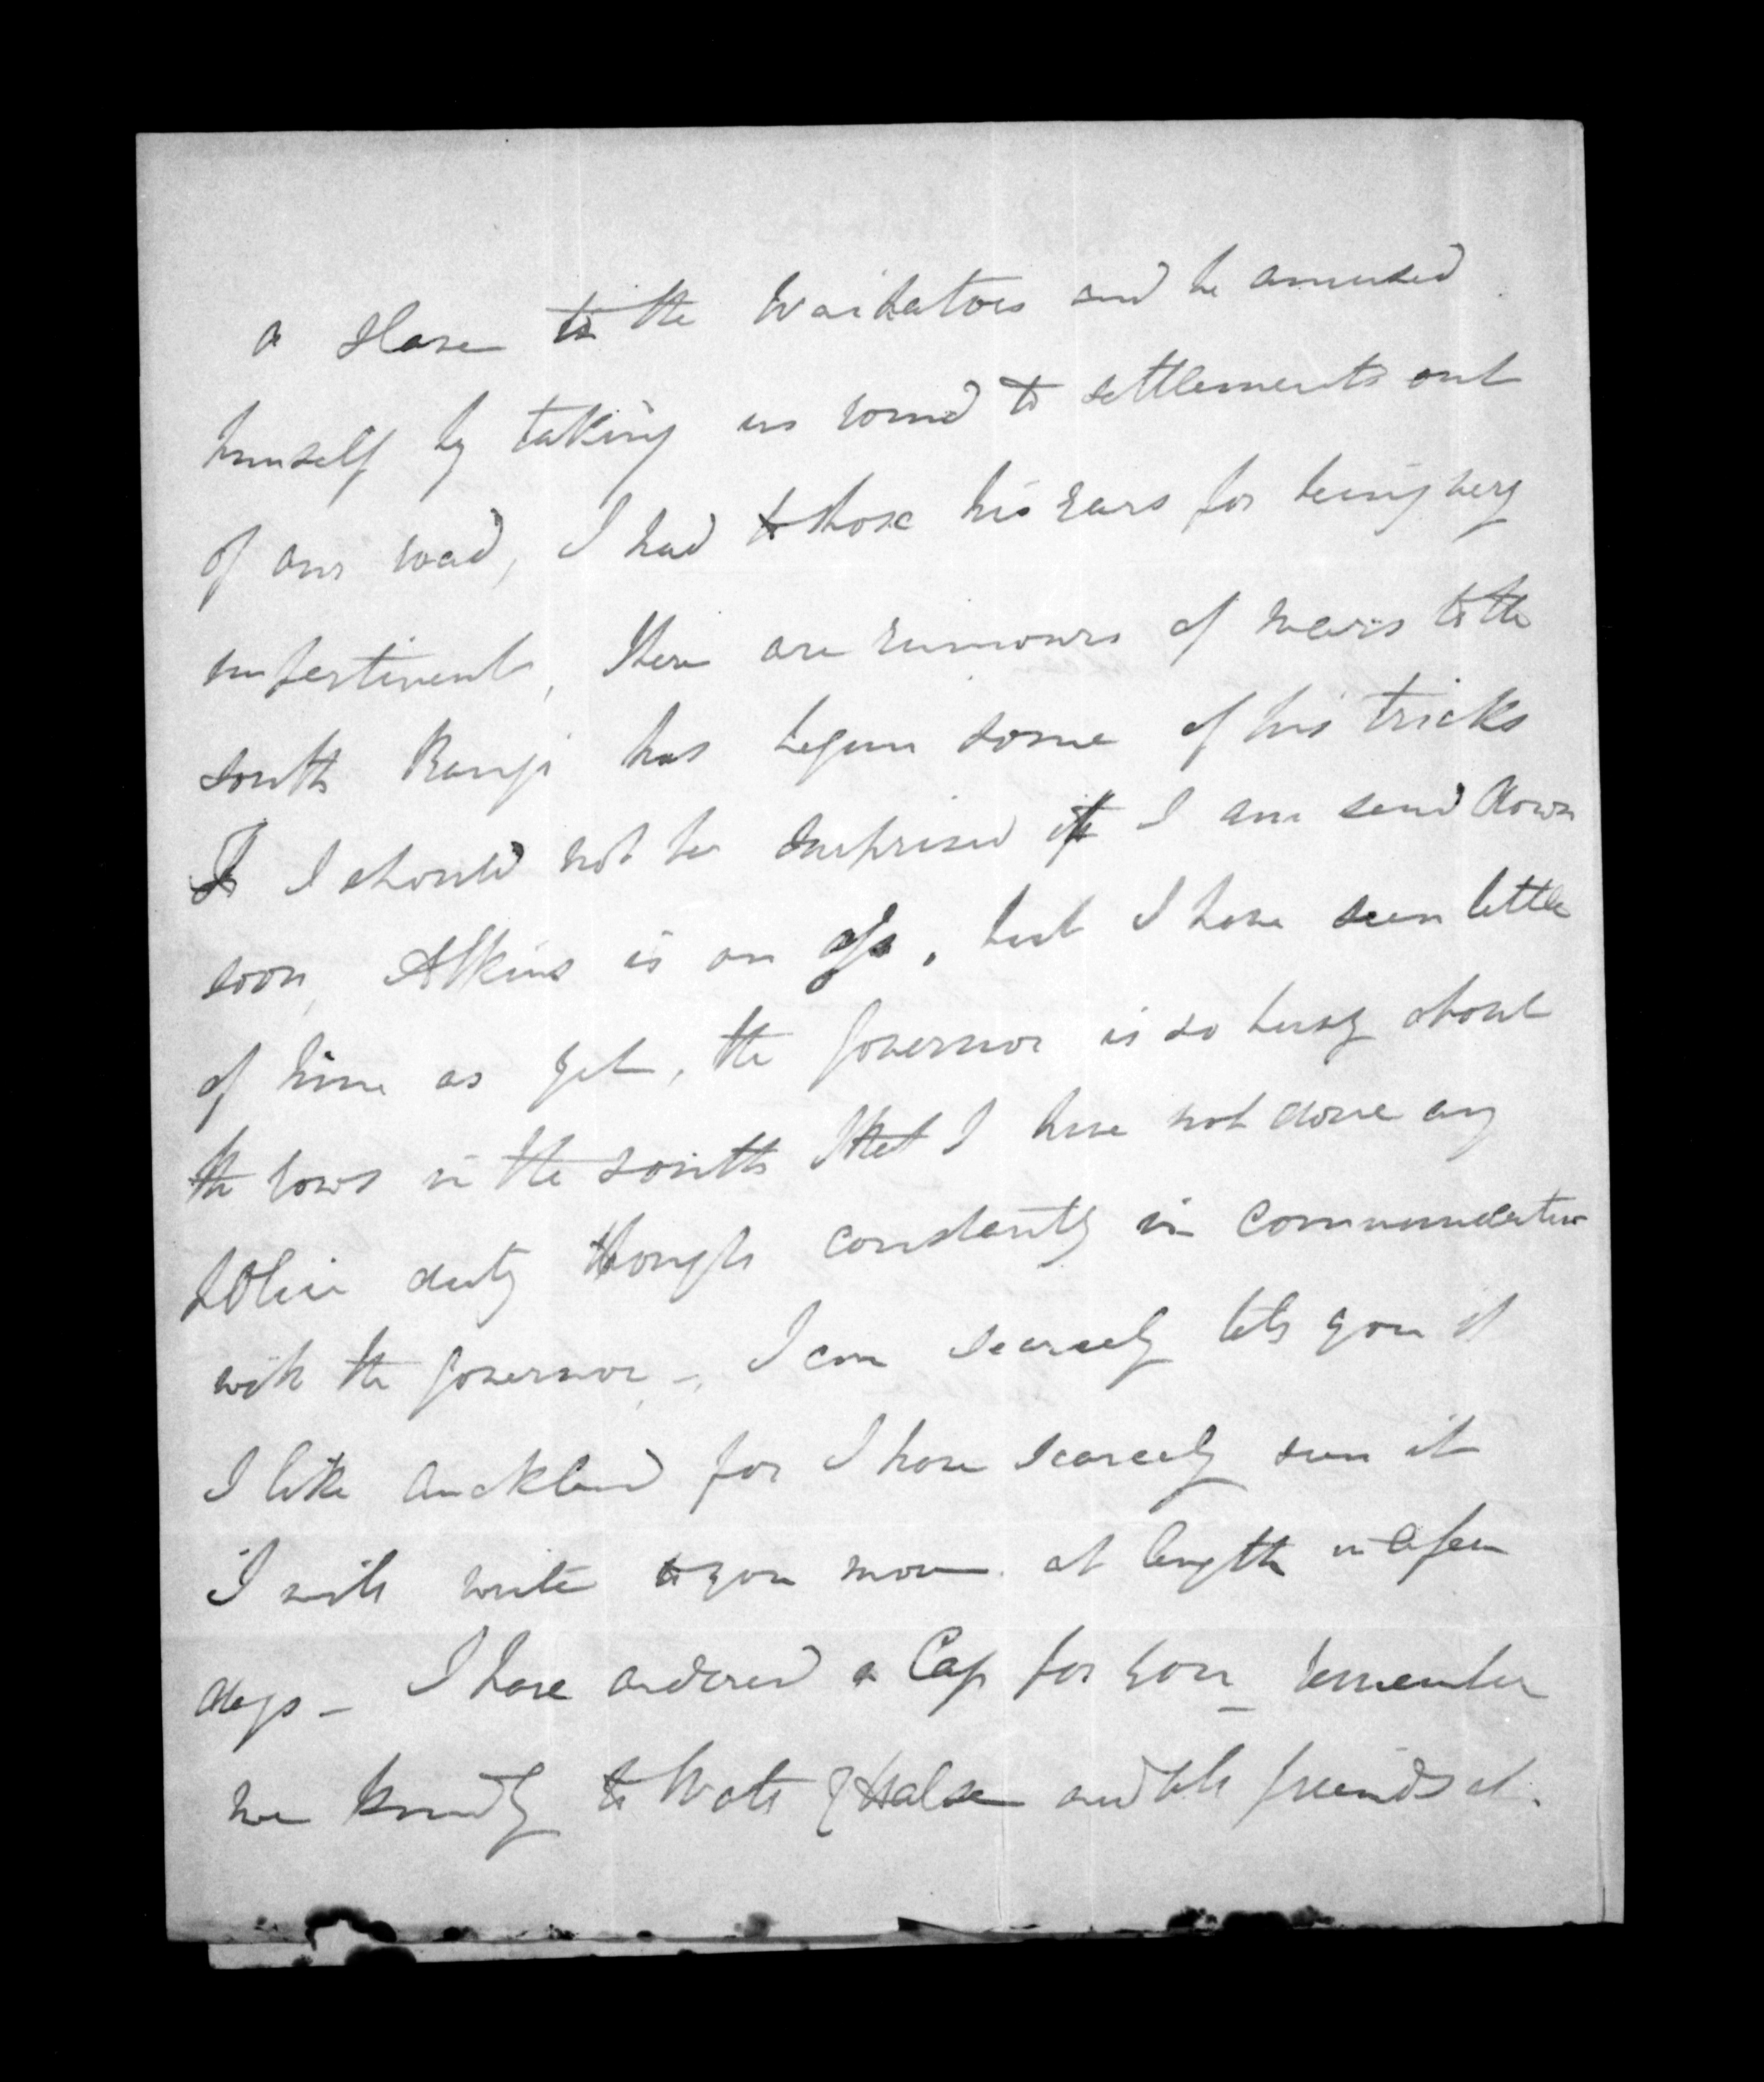 a slave to the Waikatoes and he amused
himself by taking us round to settlements out
of our road, I had to box his ears for being very
impertinent, There are rumours of wars to the
south Rangi has begun some of his tricks
I should not be surprised if I am send down
soon, Atkins is an ass, but I have seen little
of him as yet, the Governor is so busy about
the rows in the south that I have not done any
Police duty though constantly in communication
with the Governor -, I can scarcely tell you if
I like Auckland for I have scarcely seen it
I will write to you more at length in a few
days - I have ordered a Cap for you - remember
me kindly to Watt & Halse and all friends at.